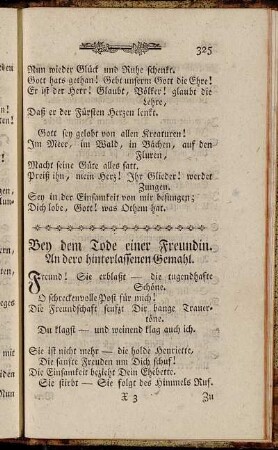 325
Nun wieder Glück und Ruhe schenkt.
Gott hats gethan! Gebt unserm Gott die Ehre!
Er ist der Herr! Glaubt, Völker! glaubt die
Lehre,
Daß er der Fürsten Herzen lenkt.
Gott sey gelobt von allen Kreaturen!
Im Meere, im Wald, in Bächen, auf den
Fluren,
Macht seine Güte alles satt.
Preiß ihn, mein Herz! Ihr Glieder! werdet
Zungen.
Sey in der Einsamkeit von mir besungen;
Dich lobe, Gott! was Othem hat.
Bey dem Tode einer Freundin.
An dero hinterlassenen Gemahl.
Freund! Sie erblaßt — die tugendhafte
Schöne.
O schreckenvolle Post für mich!
Die Freundschaft seufzt Dir bange Trauer-
töne.
Du klagst — und weinend klag auch ich.
Sie ist nicht mehr — die holde Henriette,
Die sanfte Freuden um Dich schuf!
Die Einsamkeit bezieht Dein Ehebette.
Sie stirbt — Sie folgt des Himmels Ruf.
X 3
Zu